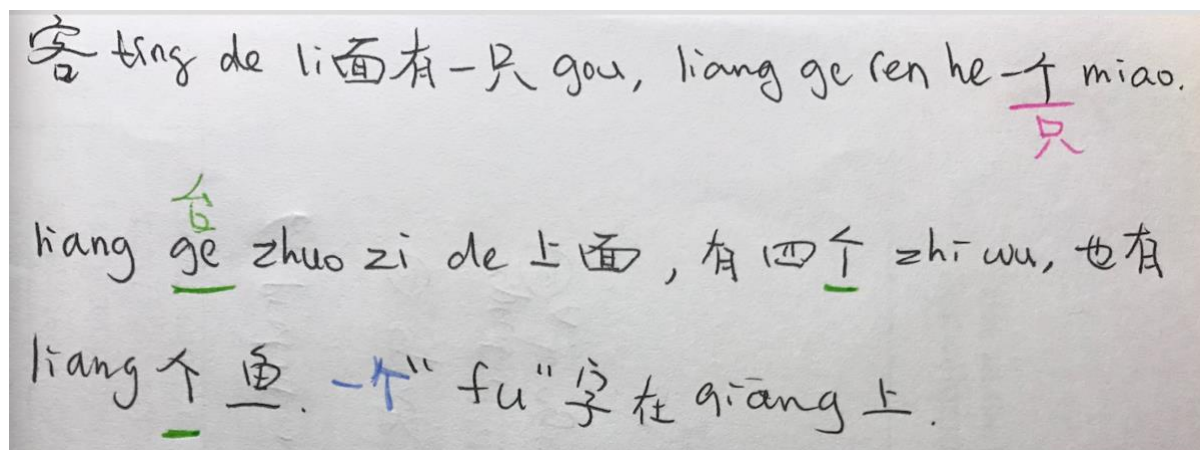 客 ting de li面有一只 gou, liang ge ren he 一个 miao.
只
台
liang ge zhuo zi de 上面, 有四个 zhi wu, 也有
liang 个鱼. 一个"fu"字在 qiāng 上.